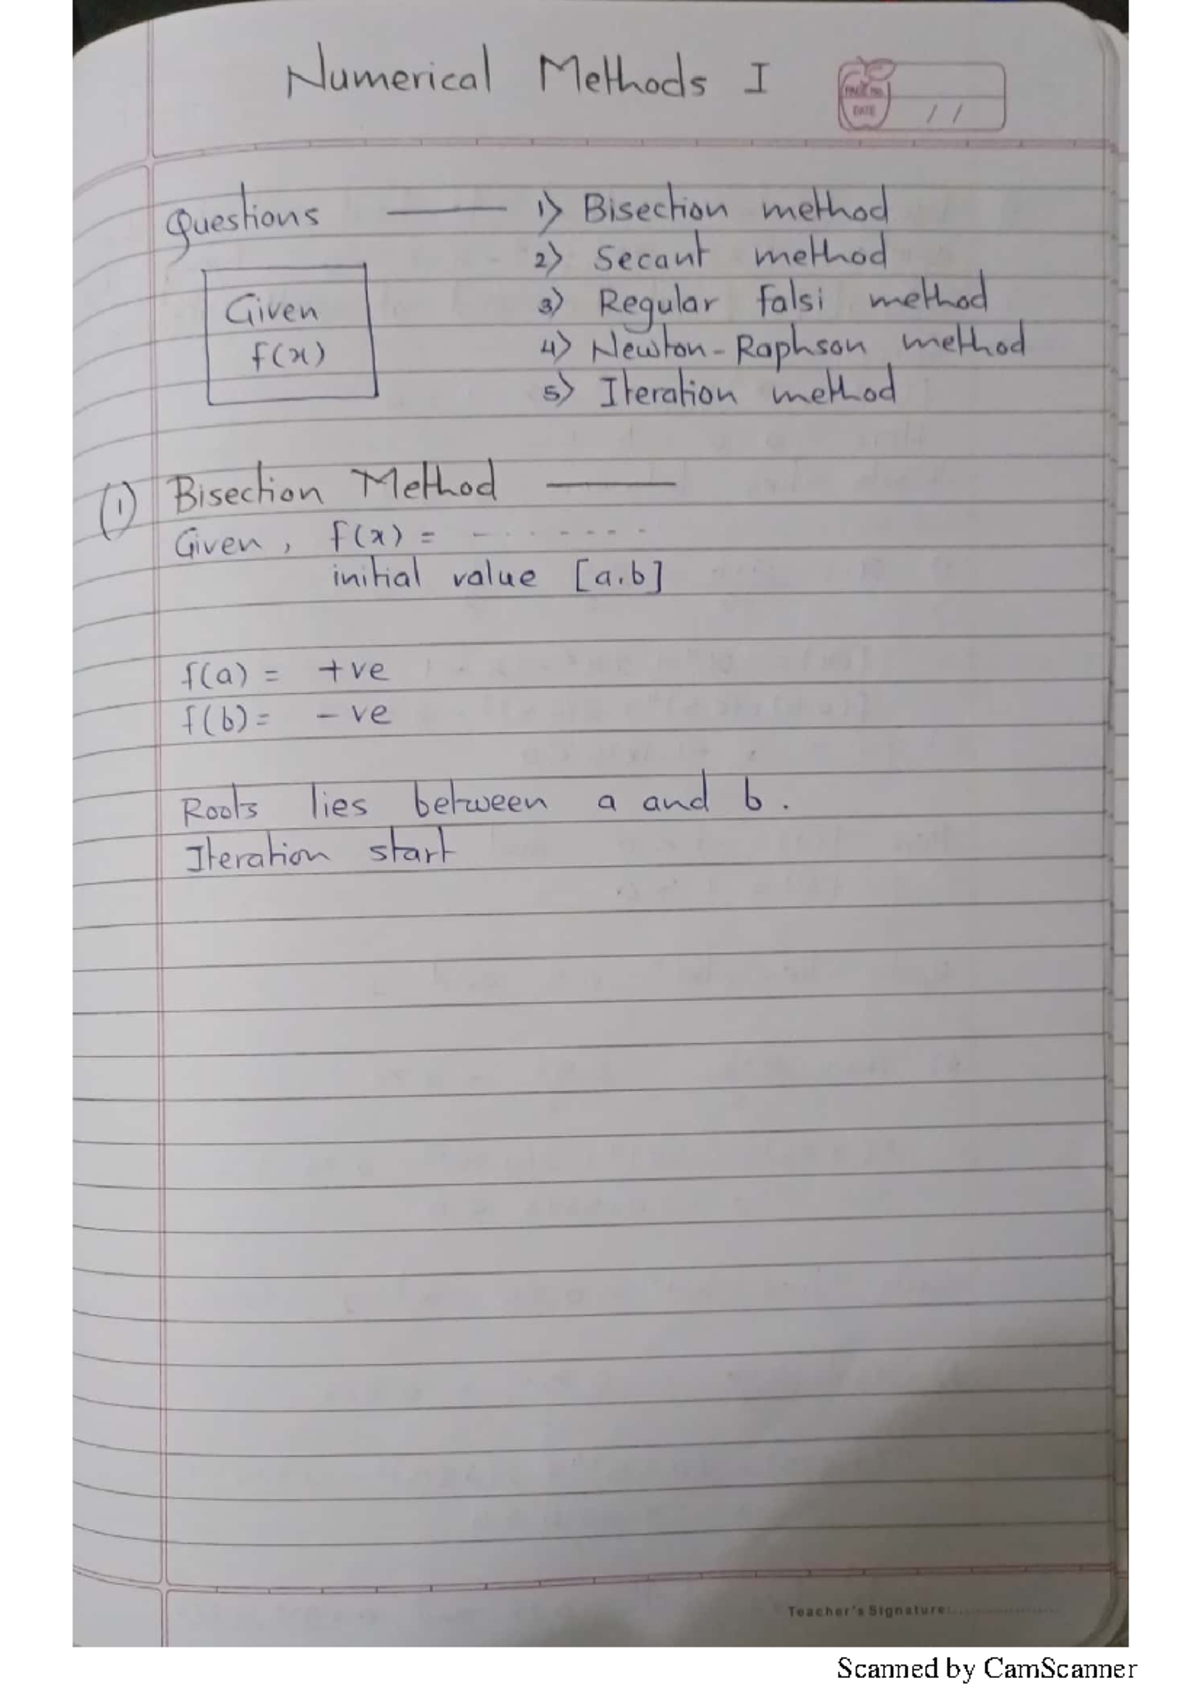 Numerical Methods I
PAGE No.
DATE
/ /
Questions —— 1) Bisection method
2) Secant method
3) Regular falsi method
4) Newton-Raphson method
5) Iteration method
Given
f(x)
(1) Bisection Method ——
Given, f(x) = - - - - - - -
initial value [a.b]
f(a) = +ve
f(b) = -ve
Roots lies between a and b.
Iteration start
Teacher's Signature:..................
Scanned by CamScanner